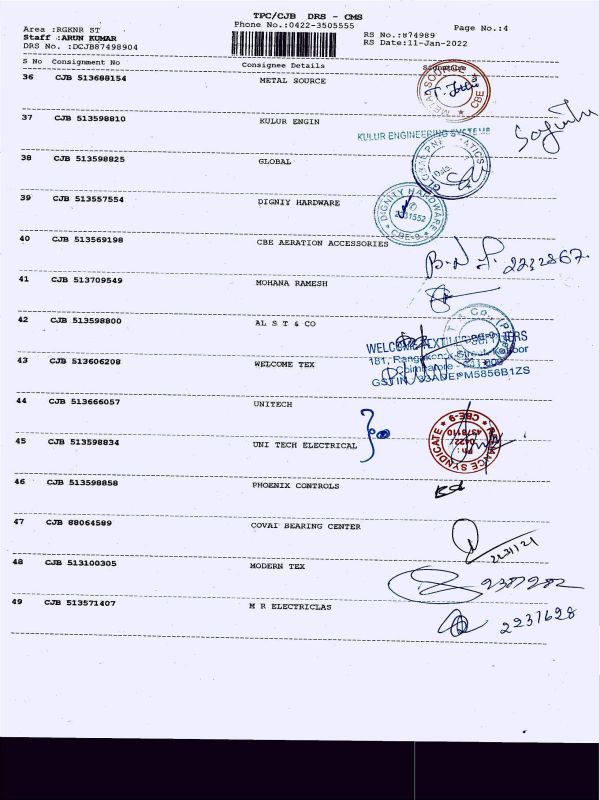 TPC/CJB DRS - CMS
Area :RGKNR ST Phone No.:0422-3505555 Page No.:4
Staff :ARUN KUMAR RS No.:874989
DRS No. :DCJB87498904 RS Date:11-Jan-2022
S No Consignment No Consignee Details Signature
36 CJB 513688154 METAL SOURCE
METAL SOURCE * CBE *
37 CJB 513598810 KULUR ENGIN
KULUR ENGINEERING SYSTEMS
38 CJB 513598825 GLOBAL
39 CJB 513557554 DIGNIY HARDWARE
DIGNITY HARDWARE
* CBE-9 *
40 CJB 513569198 CBE AERATION ACCESSORIES
2232867.
41 CJB 513709549 MOHANA RAMESH
42 CJB 513598800 AL S T & CO
43 CJB 513606208 WELCOME TEX
GSTIN
44 CJB 513666057 UNITECH
45 CJB 513598834 UNI TECH ELECTRICAL
SYNDICATE * CBE-9 *
Ph : 0422/
4378110
46 CJB 513598858 PHOENIX CONTROLS
47 CJB 88064589 COVAI BEARING CENTER
48 CJB 513100305 MODERN TEX
49 CJB 513571407 M R ELECTRICLAS
2237628